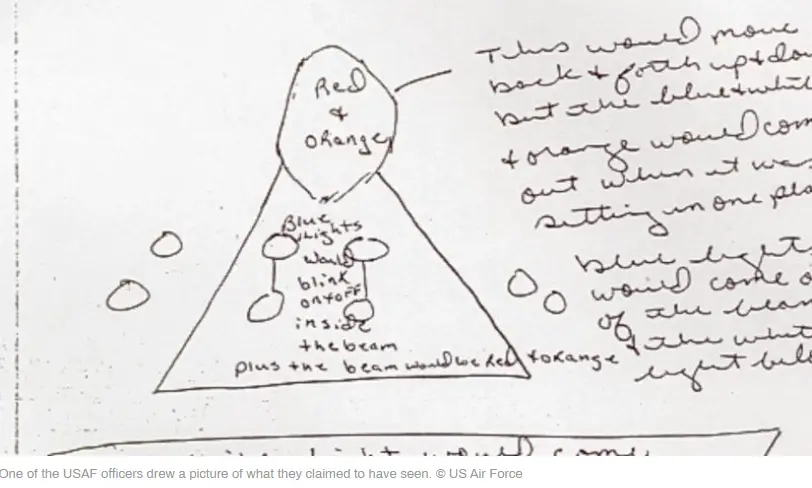 Red
+
ORange
This would move
back + forth up + do
but the blue + whit
+ orange would com
out when it was
sitting in one pla
Blue
Lights
would
blink
on + off
inside
the beam
plus the beam would be Red + oRange
blue lights
would come o
of the beam
+ the whit
light
light would come
One of the USAF officers drew a picture of what they claimed to have seen. © US Air Force